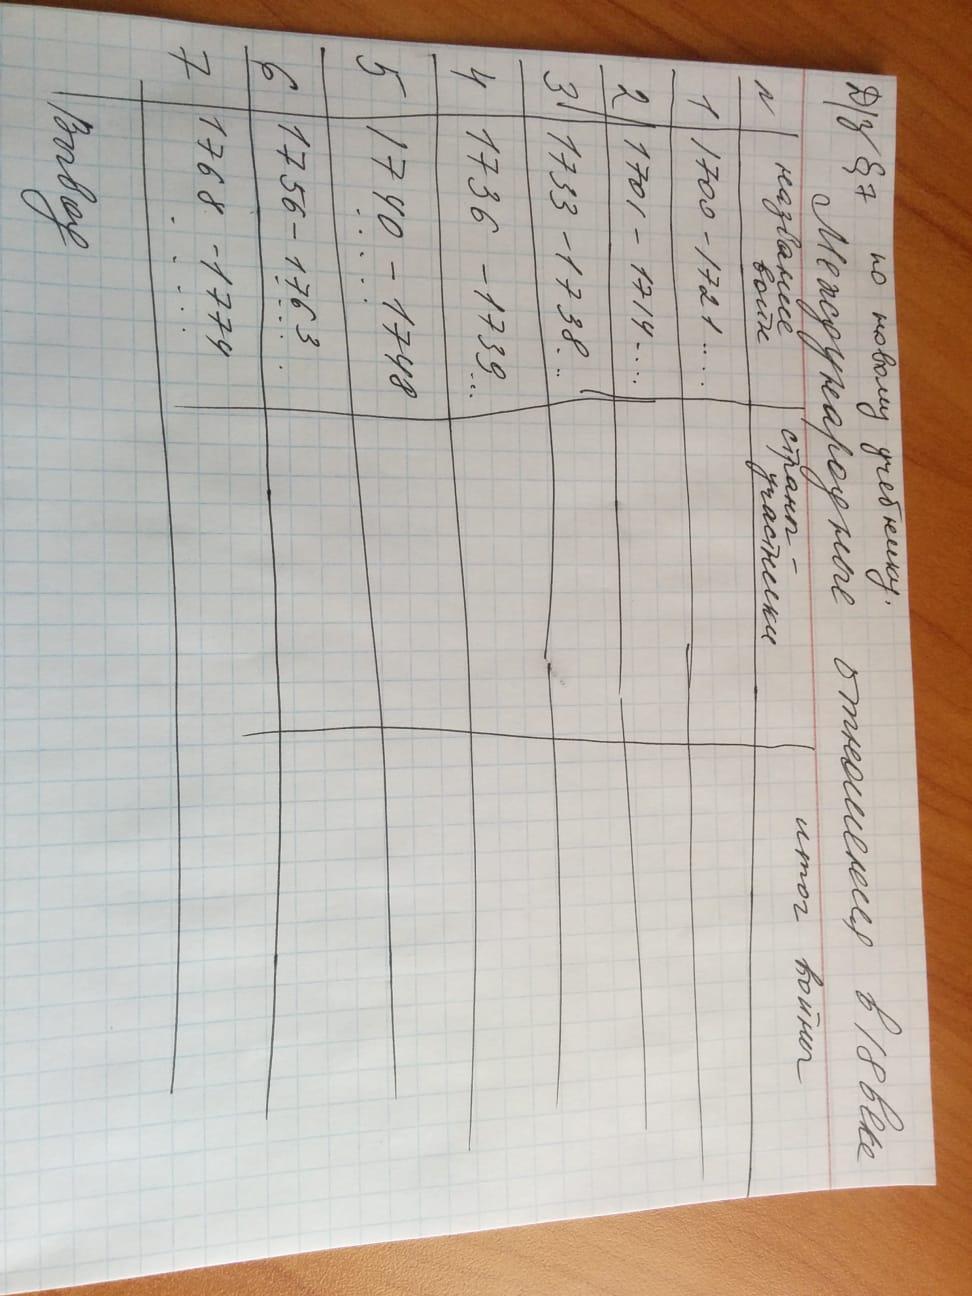 Д/з § 7 по новому учебнику.
Международные отношения в 18 веке
N название войн страны-участники итог войны
1 1700-1721....
2 1701-1714....
3 1733-1738...
4 1736-1739...
5 1740-1748
. . . .
6 1756-1763
. . . .
7 1768-1774
. . . .
Вывод